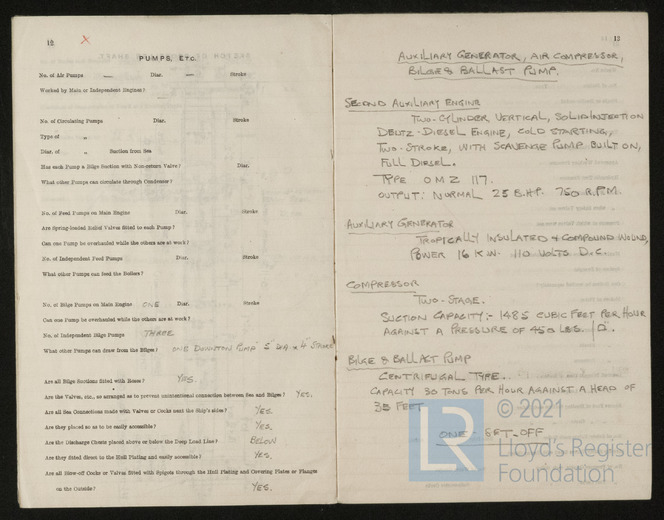 12
X
PUMPS, ETC.
No. of Air Pumps — Diar. — Stroke
Worked by Main or Independent Engines?
No. of Circulating Pumps Diar. Stroke
Type of „
Diar. of „ Suction from Sea
Has each Pump a Bilge Suction with Non-return Valve? Diar.
What other Pumps can circulate through Condenser?
No. of Feed Pumps on Main Engine Diar. Stroke
Are Spring-loaded Relief Valves fitted to each Pump?
Can one Pump be overhauled while the others are at work?
No. of Independent Feed Pumps Diar. Stroke
What other Pumps can feed the Boilers?
No. of Bilge Pumps on Main Engine ONE Diar. Stroke
Can one Pump be overhauled while the others are at work?
No. of Independent Bilge Pumps THREE
What other Pumps can draw from the Bilges? ONE DOWNTON PUMP 5" DIA x 4" STROKE
Are all Bilge Suctions fitted with Roses? YES.
Are the Valves, &c., so arranged as to prevent unintentional connection between Sea and Bilges? YES.
Are all Sea Connections made with Valves or Cocks next the Ship's sides? YES.
Are they placed so as to be easily accessible? YES.
Are the Discharge Chests placed above or below the Deep Load Line? BELOW
Are they fitted direct to the Hull Plating and easily accessible? YES.
Are all Blow-off Cocks or Valves fitted with Spigots through the Hull Plating and Covering Plates or Flanges
on the Outside? YES.
13
AUXILIARY GENERATOR, AIR COMPRESSOR,
BILGE & BALLAST PUMP.
SECOND AUXILIARY ENGINE
TWO-CYLINDER VERTICAL, SOLID INJECTION
DEUTZ-DIESEL ENGINE, COLD STARTING,
TWO-STROKE, WITH SCAVENGE PUMP BUILT ON,
FULL DIESEL.
TYPE OMZ 117.
OUTPUT: NORMAL 25 B.H.P. 750 R.P.M.
AUXILIARY GENERATOR
TROPICALLY INSULATED & COMPOUND WOUND,
POWER 16 K.W. 110 VOLTS D.C.
COMPRESSOR
TWO-STAGE.
SUCTION CAPACITY:- 1485 CUBIC FEET PER HOUR
AGAINST A PRESSURE OF 450 LBS. /□".
BILGE & BALLAST PUMP
CENTRIFUGAL TYPE.
CAPACITY 30 TONS PER HOUR AGAINST A HEAD OF
35 FEET
ONE - SET-OFF
LR
© 2021
Lloyd's Register
Foundation